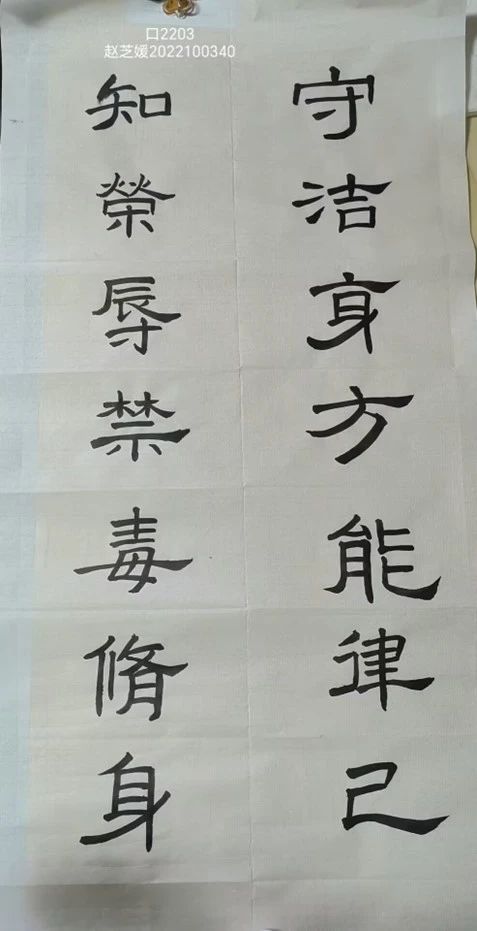 口2203
赵芝媛2022100340
守洁身方能律己
知榮辱禁毒脩身